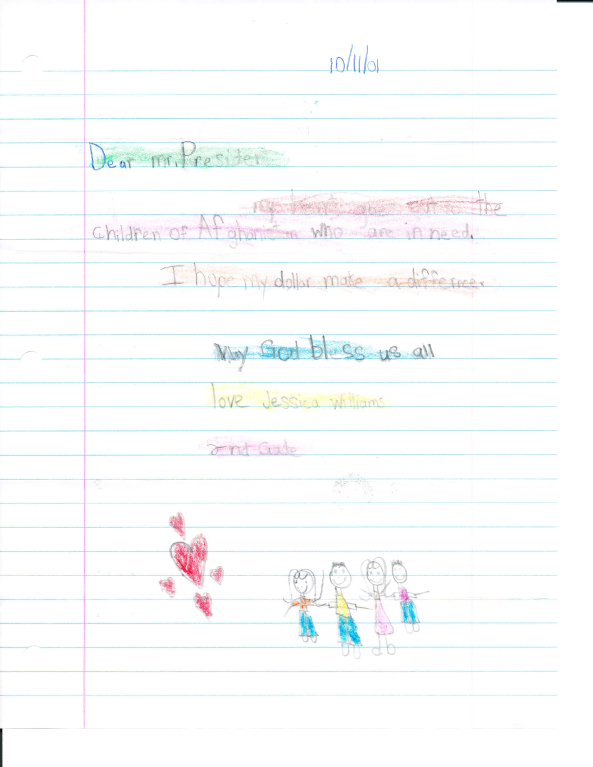 10/11/01
Dear mr. Presiden
my heart goes out to the
children of Afghanistan who are in need.
I hope my dollar make a differnce.
May God bless us all
love Jessica Williams
2nd Grade